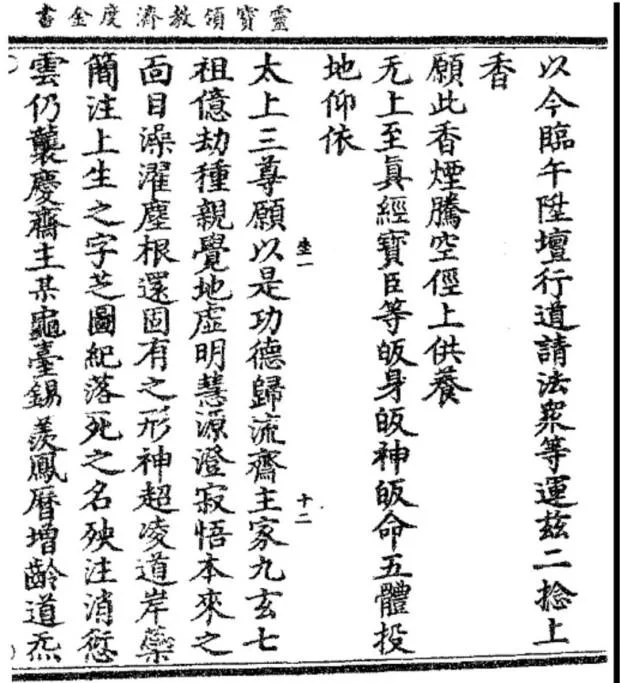 靈寶領教濟度金書
以今臨午陞壇行道請法衆等運茲二捻上
香
願此香煙騰空徑上供養
无上至眞經寶臣等皈身皈神皈命五體投
地仰依
太上三尊願以是功德歸流齋主家九玄七
坐一
十二
祖億劫種親覺地虛明慧源澄寂悟本來之
面目澡濯塵根還固有之形神超凌道岸蘂
簡注上生之字芝圖紀落死之名殃注消愆
雲仍襲慶齋主某龜臺錫羨鳳曆增齡道炁